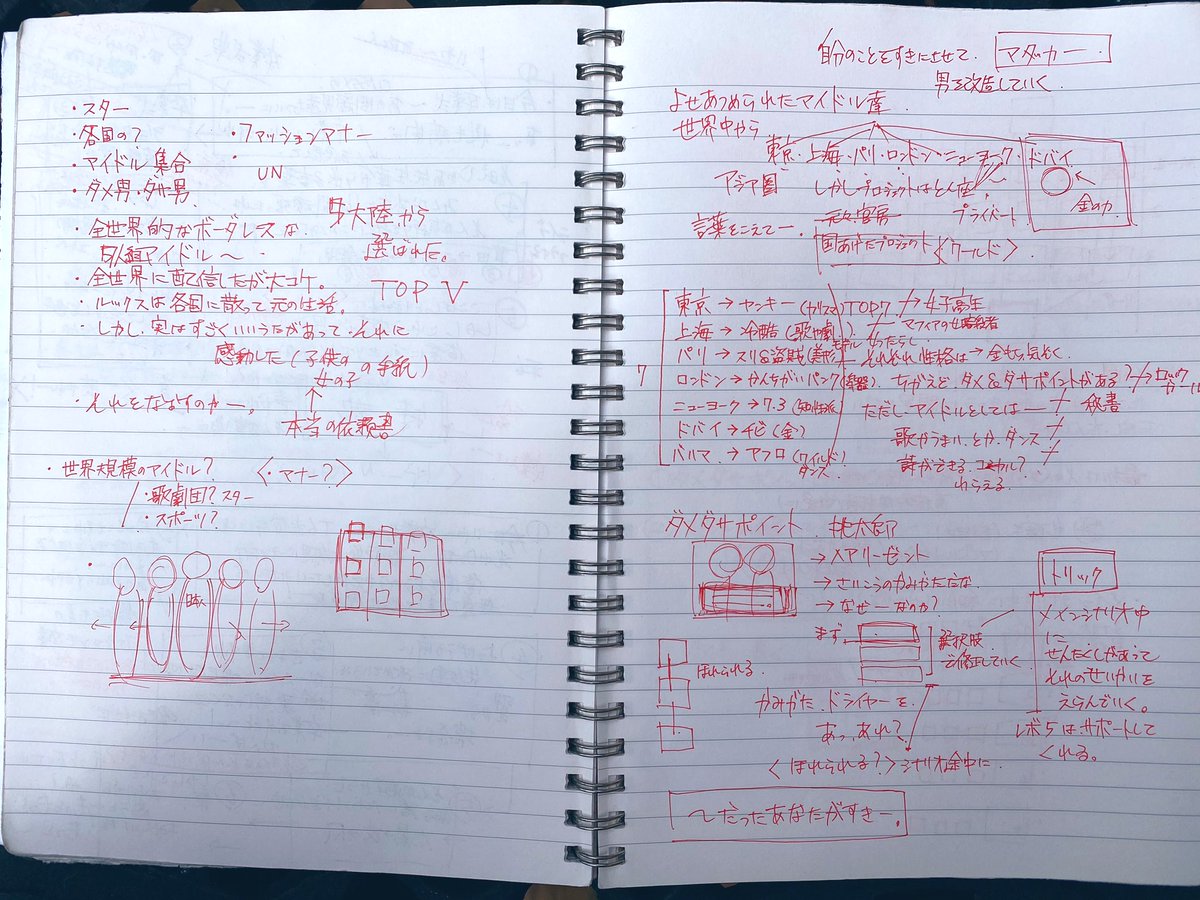 ・スター
・各国の?
・ファッションマナー
・アイドル集合
・UN
・ダメ男・ダサ男.
・全世界的なボーダレスな.
5人組アイドル〜
5大陸から
選ばれた。
・全世界に配信したが大コケ。
TOP V
・ルックスは各国に散って元の生活。
・しかし、実はすごくいいうたがあって・それに
感動した(子供の の手紙)
女の子
↑
・それをなおすのか―。
本当の依頼書
・世界規模のアイドル?
〈・マナー?〉
・歌劇団? スター
・スポーツ?
自分のことをすきにさせて.
マダッカー.
男を改造していく
よせあつめられたアイドル達.
世界中から
東京・上海・パリ・ロンドン・ニューヨーク・ドバイ
アジア圏
しかしプロジェクトはとん座
金の力
プライベート
言葉をこえてー.
国あげたプロジェクト〈ワールド〉
東京→ヤンキー(カリスマ)
TOP7
女子高年
上海→冷酷(歌や劇)
マフィアの女暗殺者
モデル 女たらし.
パリ→スリ&盗賊(美形)
それぞれ性格は→
ロンドン→かんちがいパンク(楽器).
ちがえど、ダメ&ダサポイントがある
7
ニューヨーク→7.3(知性派)
ただし・アイドルとしては―
秘書
ドバイ→チビ(金)
歌がうまい.とか.ダンス
バルマ.→アフロ(ワイルド)
ダンス
詩ができる.
わらえる
ダメダサポイント 桃太郎
→メアリーゼント
→さいこうのかみがただな.
→なぜ―なのか?
トリック
まず、
選択肢
で修正していく
メインシナリオ中
に
せんたくしがあって
それのせいかいを
えらんでいく。
ほれられる.
かみがた.ドライヤーを.
あっ、あれ?
レボ5は.サポートして
くれる。
〈ほれられる?〉シナリオ途中に.
〜だったあなたがすきー.